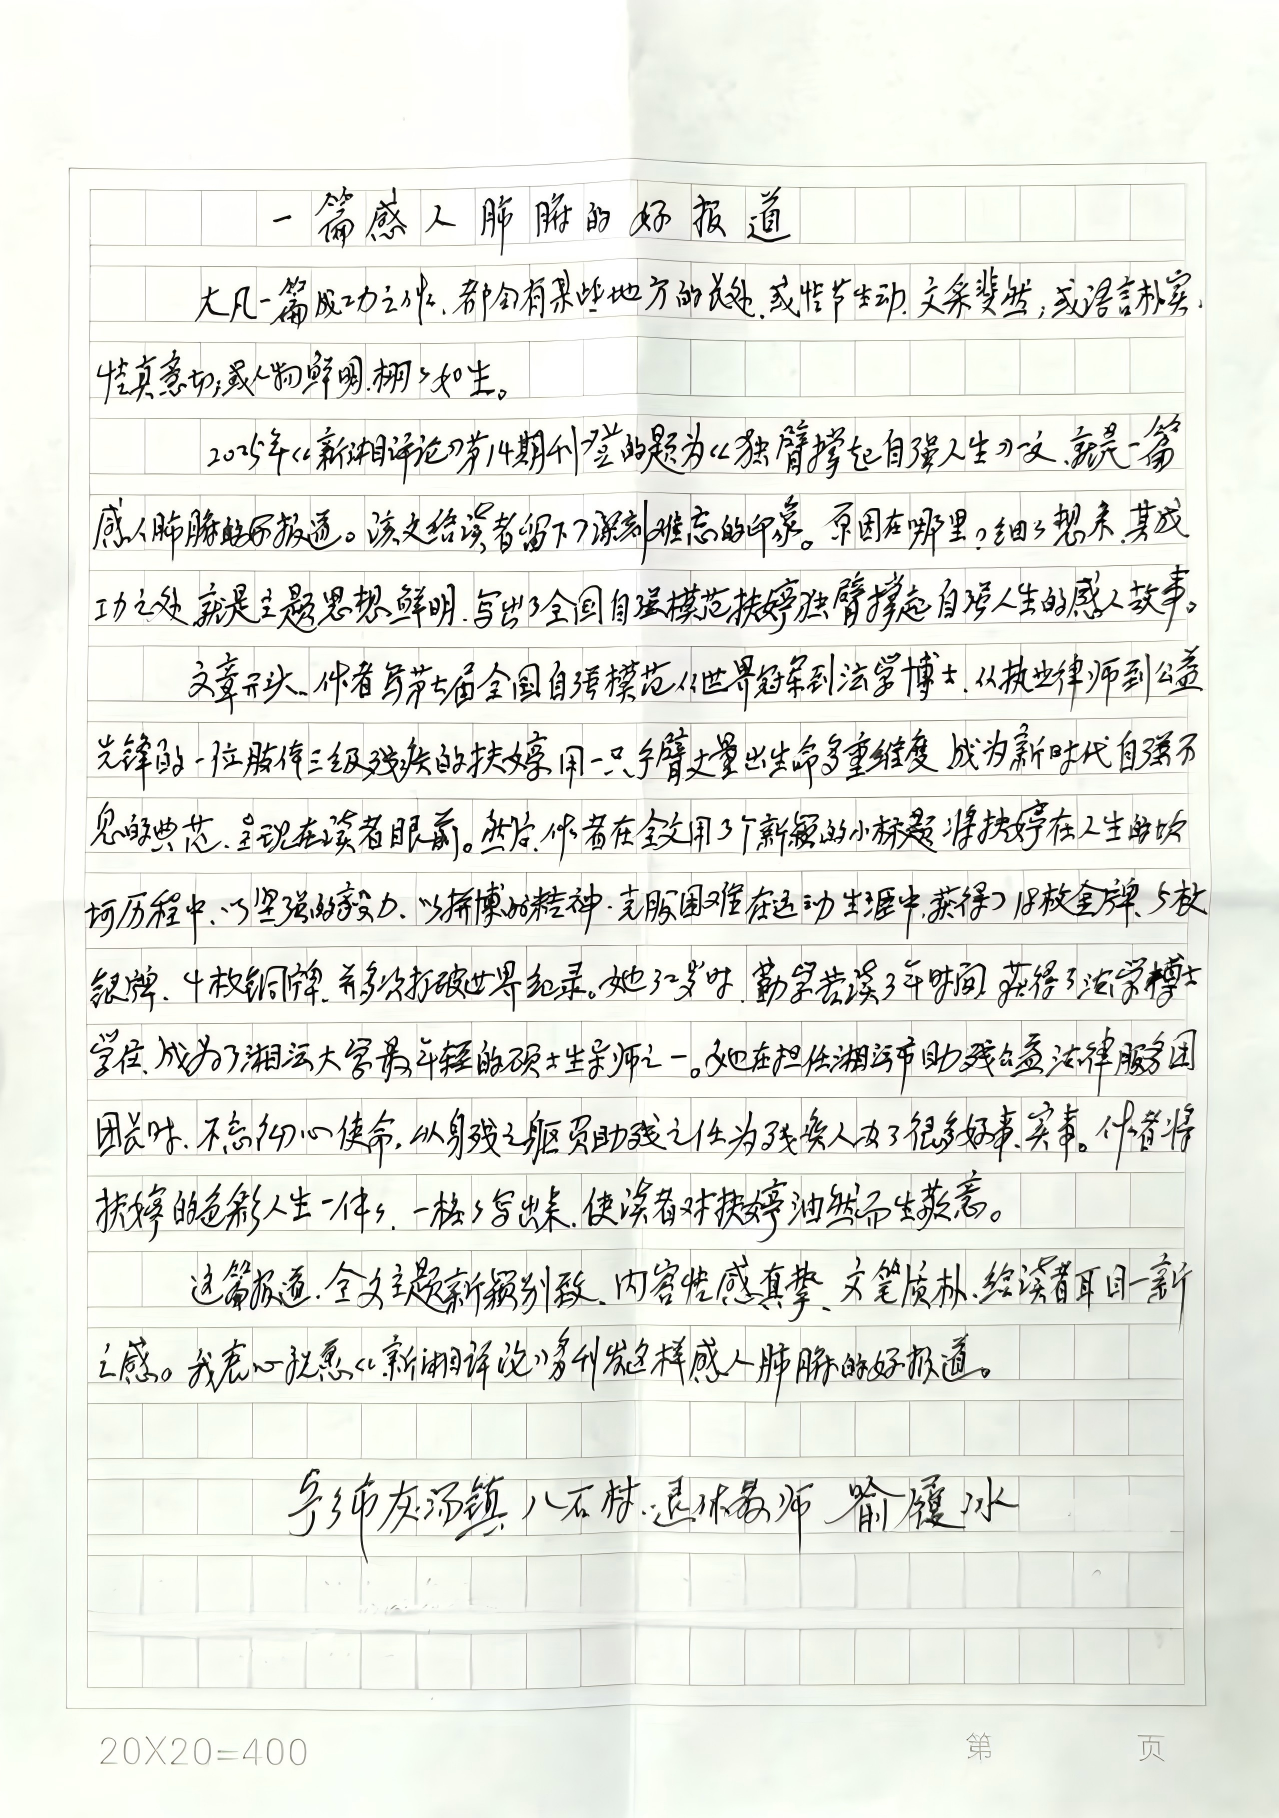 一篇感人肺腑的好报道
大凡一篇成功之作、都会有某些地方的长处、或情节生动、文采斐然；或语言朴实、
情真意切；或人物鲜明、栩々如生。
2025年《新湘评论》第14期刊登的题为《独臂撑起自强人生》一文、就是一篇
感人肺腑的好报道。该文给读者留下了深刻难忘的印象。原因在哪里？细々想来、其成
功之处、就是主题思想鲜明、写出了全国自强模范扶婷独臂撑起自强人生的感人故事。
文章开头、作者写第七届全国自强模范从世界冠军到法学博士、从执业律师到公益
先锋的一位肢体三级残疾的扶婷用一只手臂丈量出生命多重维度、成为新时代自强不
息的典范、呈现在读者眼前。然后、作者在全文用3个新颖的小标题将扶婷在人生的坎
坷历程中、以坚强的毅力、以拼博的精神、克服困难在运动生涯中、获得了18枚金牌、5枚
银牌、4枚铜牌、并多次打破世界纪录。她32岁时、勤学苦读3年时间、获得了法学博士
学位、成为了湘潭大学最年轻的硕士生导师之一。她在担任湘潭市助残公益法律服务团
团长时、不忘初心使命、以身残之躯负助残之任为残疾人办了很多好事、实事。作者将
扶婷的色彩人生一件々、一桩々写出来、使读者对扶婷油然而生敬意。
这篇报道、全文主题新颖别致、内容情感真挚、文笔质朴、给读者耳目一新
之感。我衷心祝愿《新湘评论》多刊发这样感人肺腑的好报道。
宁乡市灰汤镇八石村、退休教师 喻履冰
20X20=400 第 页